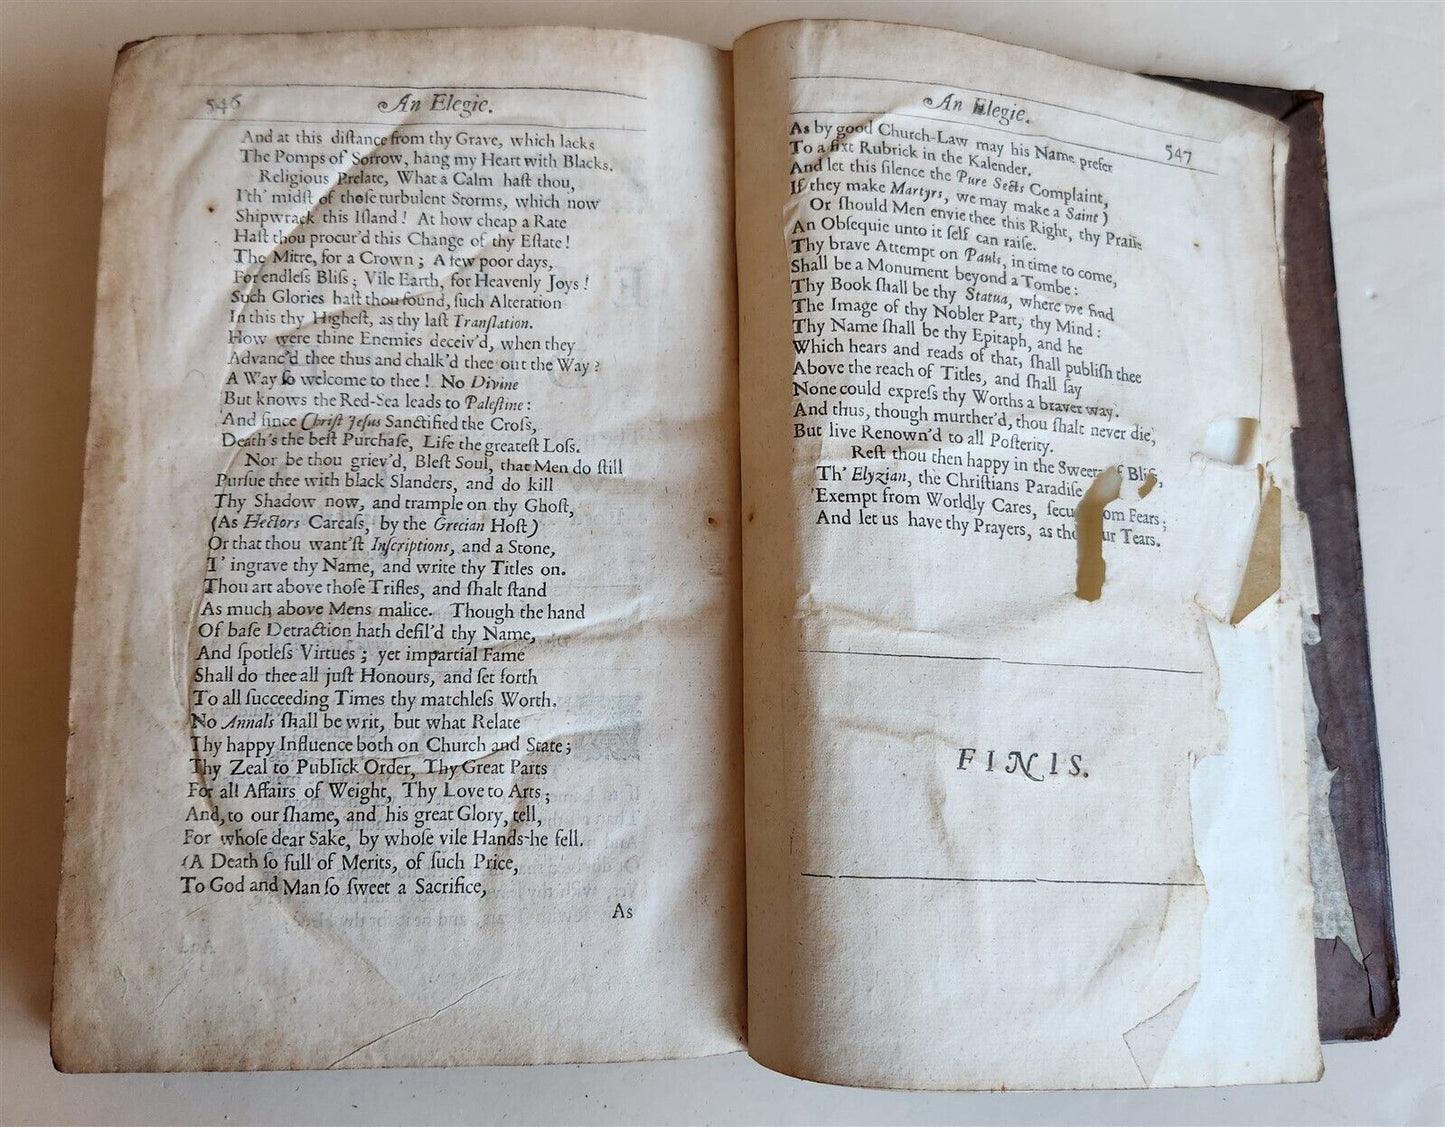 546
An Elegie.
And at this diſtance from thy Grave, which lacks
The Pomps of Sorrow, hang my Heart with Blacks.
Religious Prelate, What a Calm haſt thou,
I'th' midſt of thoſe turbulent Storms, which now
Shipwrack this Iſland! At how cheap a Rate
Haſt thou procur'd this Change of thy Eſtate!
The Mitre, for a Crown; A few poor days,
For endleſs Bliſs; Vile Earth, for Heavenly Joys!
Such Glories haſt thou found, ſuch Alteration
In this thy Higheſt, as thy laſt Tranſlation.
How were thine Enemies deceiv'd, when they
Advanc'd thee thus and chalk'd thee out the Way?
A Way ſo welcome to thee! No Divine
But knows the Red-Sea leads to Paleſtine:
And ſince Chriſt Jeſus Sanctified the Croſs,
Death's the beſt Purchaſe, Life the greateſt Loſs.
Nor be thou griev'd, Bleſt Soul, that Men do ſtill
Purſue thee with black Slanders, and do kill
Thy Shadow now, and trample on thy Ghoſt,
(As Hectors Carcaſs, by the Grecian Hoſt)
Or that thou want'ſt Inſcriptions, and a Stone,
T' ingrave thy Name, and write thy Titles on.
Thou art above thoſe Trifles, and ſhalt ſtand
As much above Mens malice. Though the hand
Of baſe Detraction hath defil'd thy Name,
And ſpotleſs Virtues; yet impartial Fame
Shall do thee all juſt Honours, and ſet forth
To all ſucceeding Times thy matchleſs Worth.
No Annals ſhall be writ, but what Relate
Thy happy Influence both on Church and State;
Thy Zeal to Publick Order, Thy Great Parts
For all Affairs of Weight, Thy Love to Arts;
And, to our ſhame, and his great Glory, tell,
For whoſe dear Sake, by whoſe vile Hands he fell.
(A Death ſo full of Merits, of ſuch Price,
To God and Man ſo ſweet a Sacrifice,
As
An Elegie.
547
As by good Church-Law may his Name prefer
To a fixt Rubrick in the Kalender.
And let this ſilence the Pure Sects Complaint,
If they make Martyrs, we may make a Saint)
Or ſhould Men envie thee this Right, thy Praiſe
An Obſequie unto it ſelf can raiſe.
Thy brave Attempt on Pauls, in time to come,
Shall be a Monument beyond a Tombe:
Thy Book ſhall be thy Statua, where we find
The Image of thy Nobler Part, thy Mind:
Thy Name ſhall be thy Epitaph, and he
Which hears and reads of that, ſhall publiſh thee
Above the reach of Titles, and ſhall ſay
None could expreſs thy Worths a braver way.
And thus, though murther'd, thou ſhalt never die,
But live Renown'd to all Poſterity.
Reſt thou then happy in the Sweets of Bliſs,
Th' Elyzian, the Chriſtians Paradiſe
Exempt from Worldly Cares, ſecu om Fears;
And let us have thy Prayers, as tho ur Tears.
FINIS.